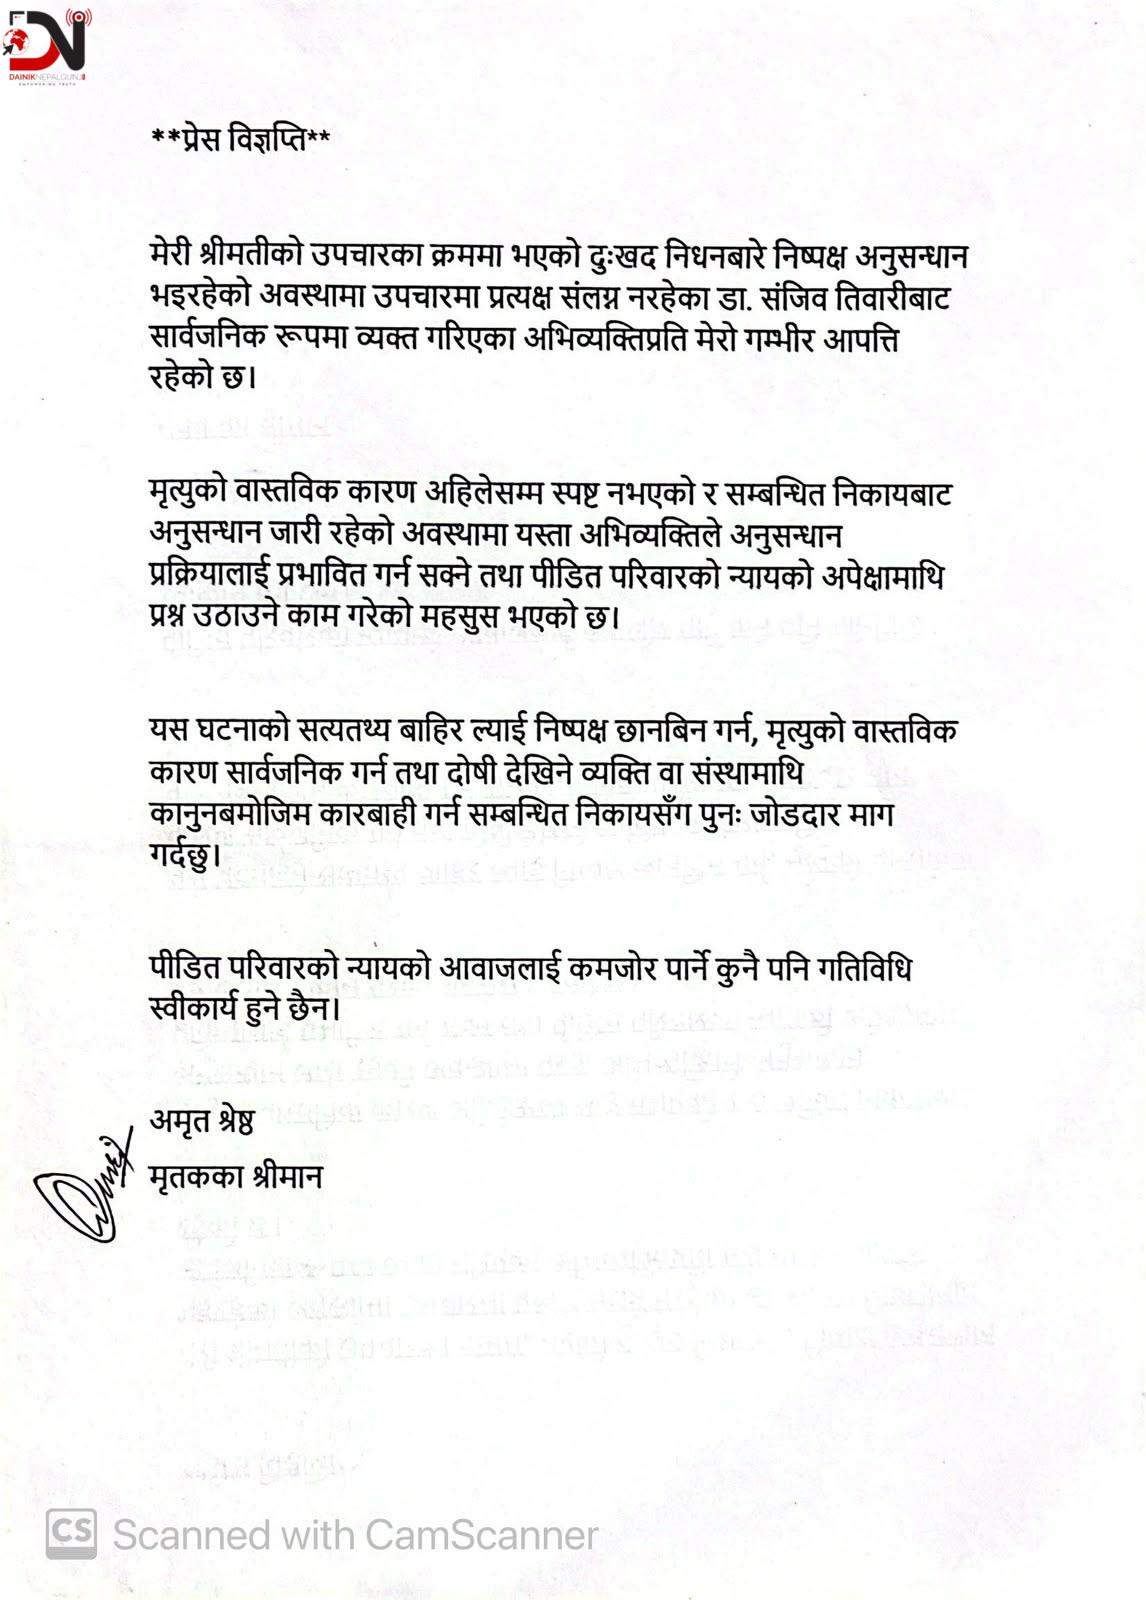 DN
DAINIKNEPALGUNJ
EMPOWERING TRUTH
**प्रेस विज्ञप्ति**
मेरी श्रीमतीको उपचारका क्रममा भएको दुःखद निधनबारे निष्पक्ष अनुसन्धान
भइरहेको अवस्थामा उपचारमा प्रत्यक्ष संलग्न नरहेका डा. संजिव तिवारीबाट
सार्वजनिक रूपमा व्यक्त गरिएका अभिव्यक्तिप्रति मेरो गम्भीर आपत्ति
रहेको छ।
मृत्युको वास्तविक कारण अहिलेसम्म स्पष्ट नभएको र सम्बन्धित निकायबाट
अनुसन्धान जारी रहेको अवस्थामा यस्ता अभिव्यक्तिले अनुसन्धान
प्रक्रियालाई प्रभावित गर्न सक्ने तथा पीडित परिवारको न्यायको अपेक्षामाथि
प्रश्न उठाउने काम गरेको महसुस भएको छ।
यस घटनाको सत्यतथ्य बाहिर ल्याई निष्पक्ष छानबिन गर्न, मृत्युको वास्तविक
कारण सार्वजनिक गर्न तथा दोषी देखिने व्यक्ति वा संस्थामाथि
कानुनबमोजिम कारबाही गर्न सम्बन्धित निकायसँग पुनः जोडदार माग
गर्दछु।
पीडित परिवारको न्यायको आवाजलाई कमजोर पार्ने कुनै पनि गतिविधि
स्वीकार्य हुने छैन।
अमृत श्रेष्ठ
मृतकका श्रीमान
CS Scanned with CamScanner